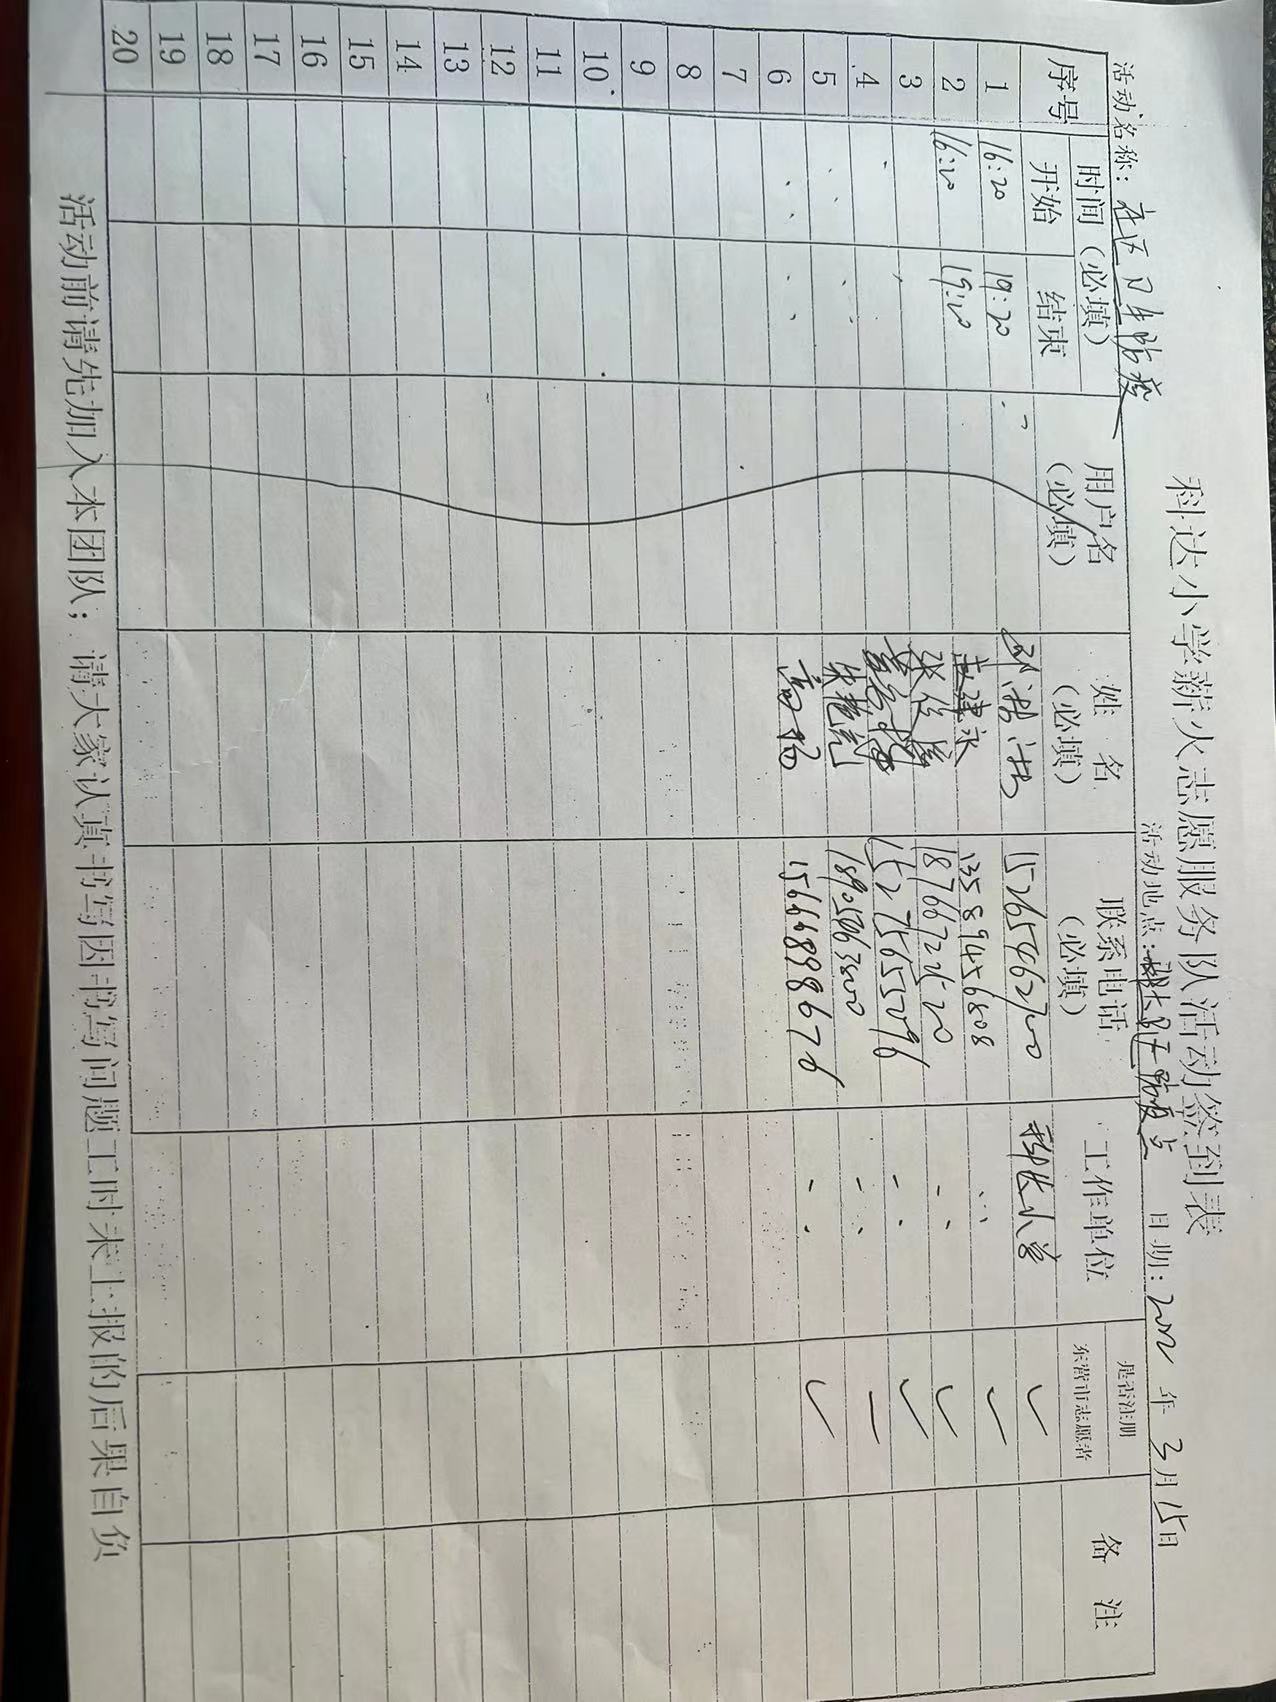 科达小学薪火志愿服务队活动签到表
活动名称：社区卫生防疫 活动地点：科大社区防疫点 日期：2022年3月15日
序号 时间（必填） 用户名（必填） 姓名（必填） 联系电话（必填） 工作单位 是否注册东营市志愿者 备注
开始 结束
1 16:20 19:20 15265462700 科达小学 ✓
2 16:20 19:20 赵建永 13589456808 ✓
3 张俊 18766722520 ✓
4 15275655096 ✓
5 朱艳 18905463800
6 高杨 15666898676 ✓
7
8
9
10
11
12
13
14
15
16
17
18
19
20
活动前请先加入本团队；请大家认真书写因书写问题工时未上报的后果自负